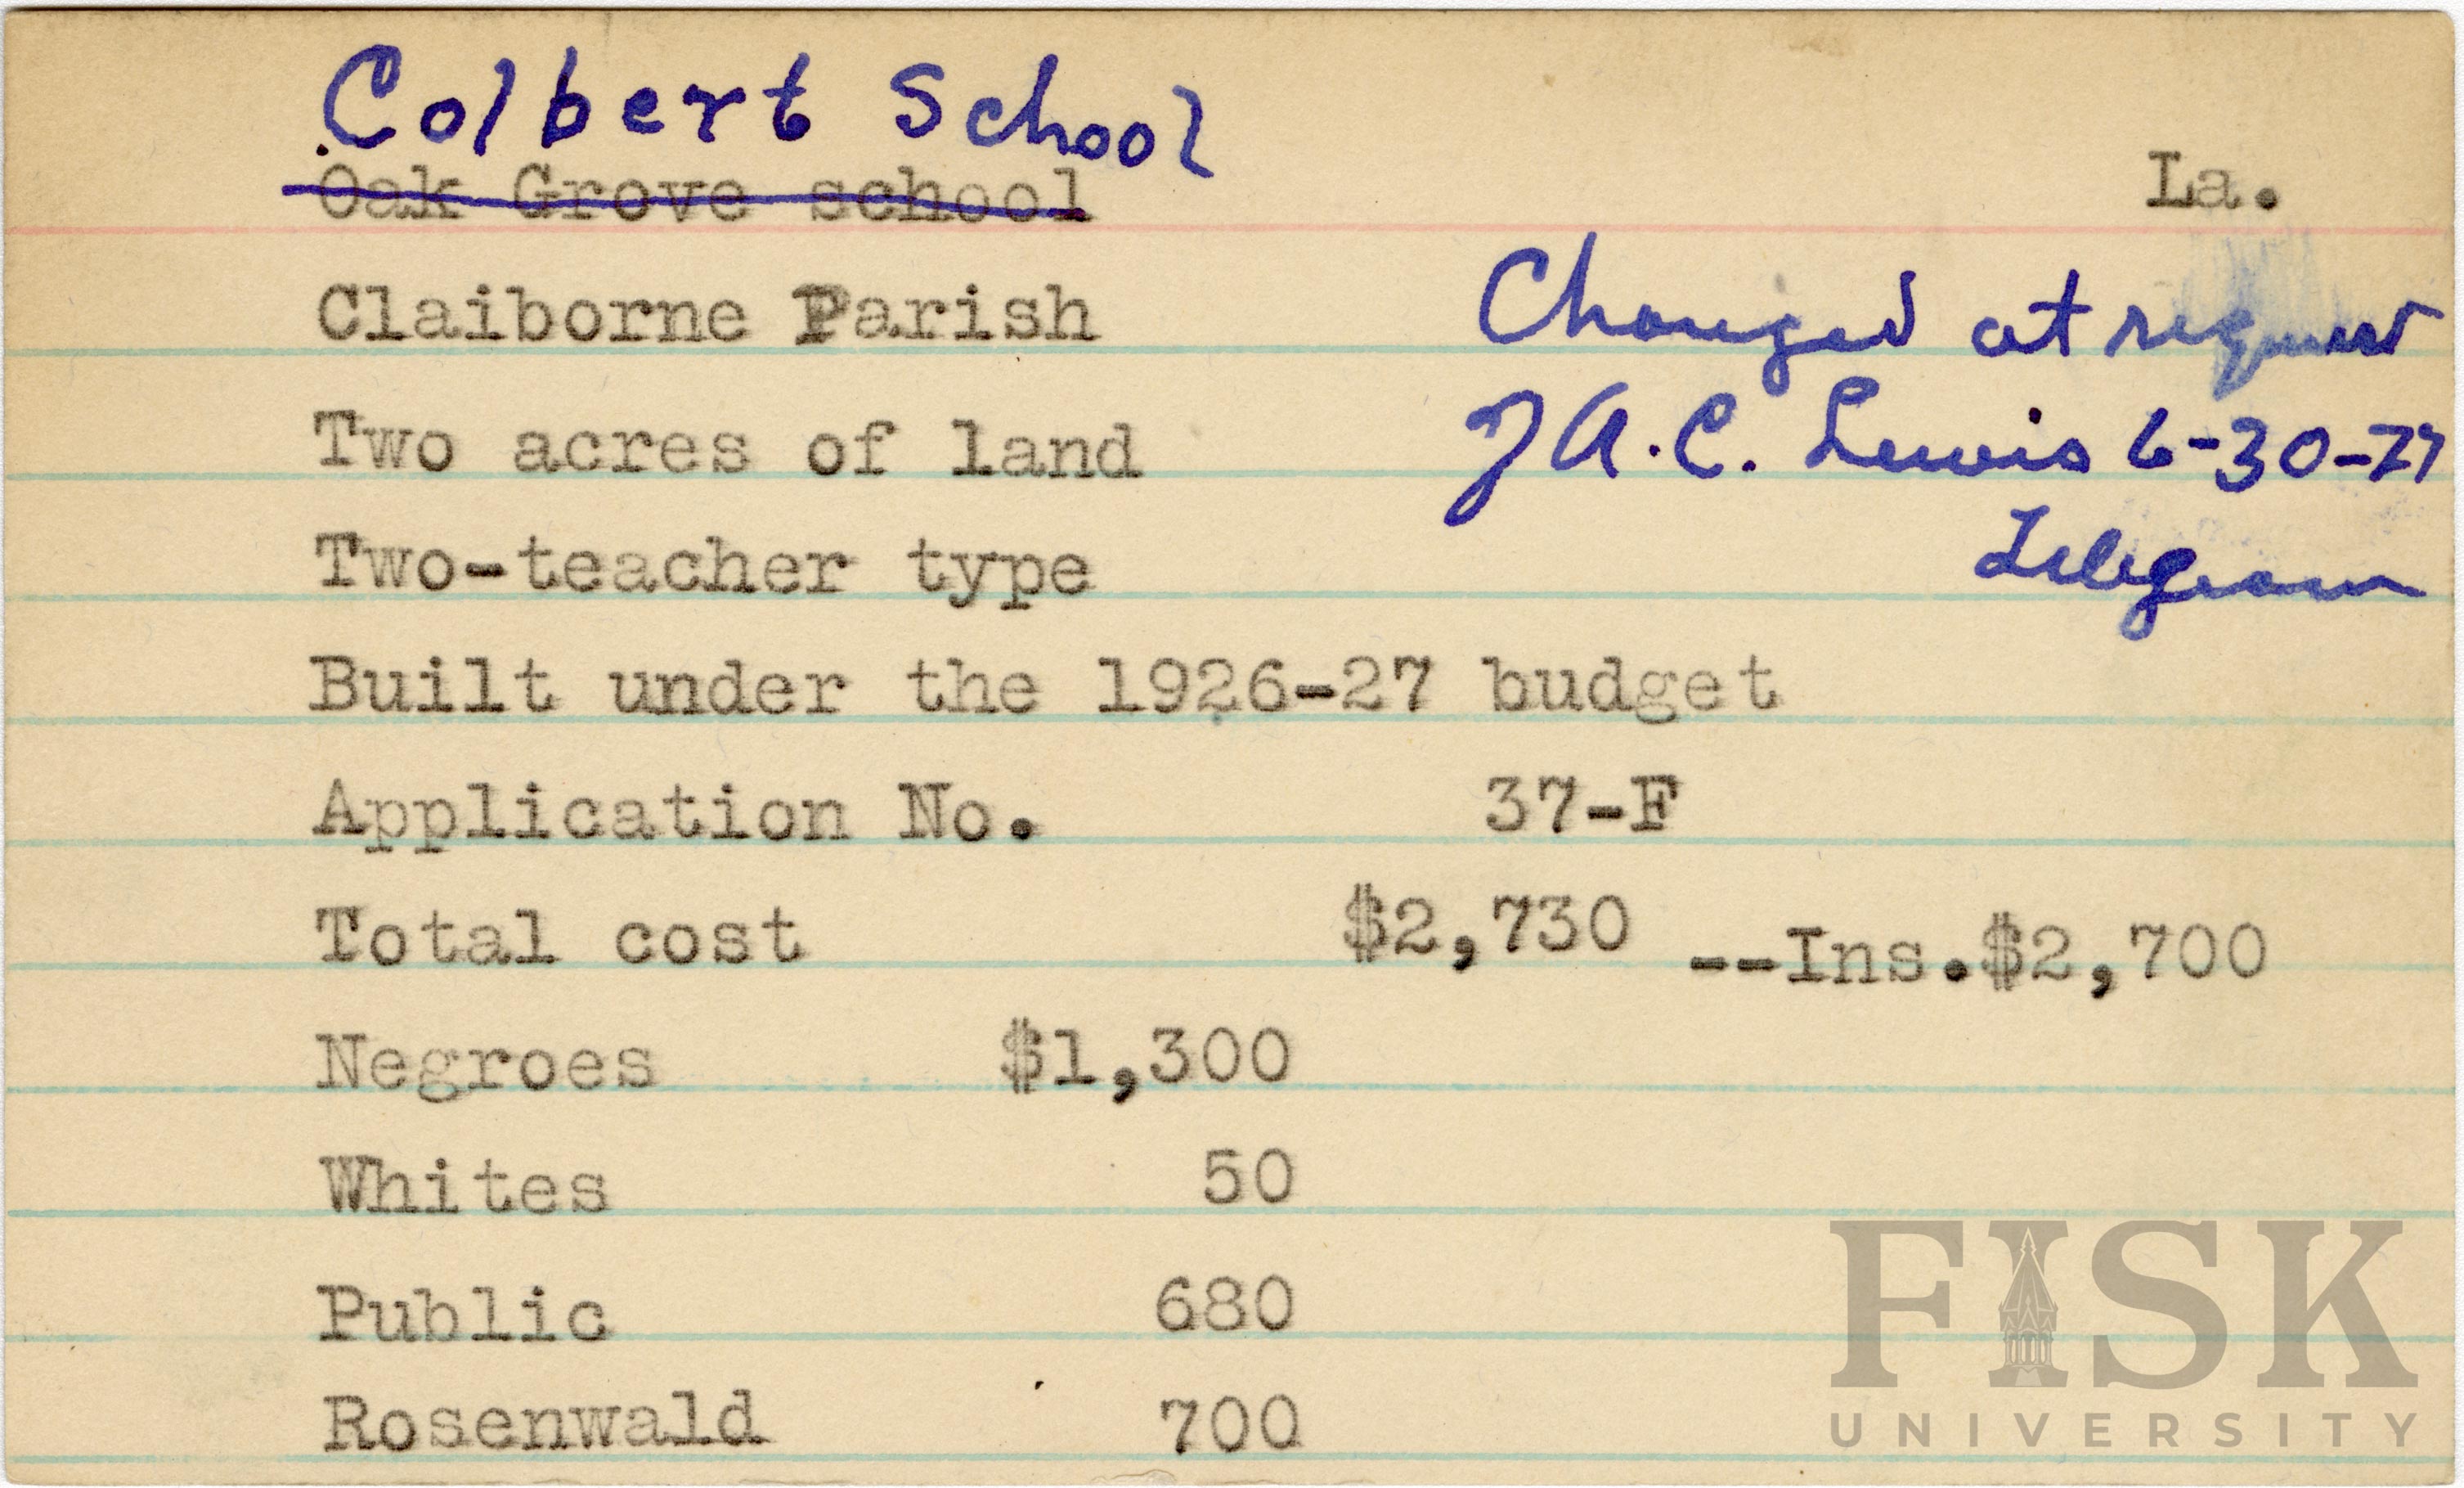 Colbert School
Oak Grove school
La.
Claiborne Parish
Changed at request
Two acres of land
J A. C. Lewis 6-30-27
Two-teacher type
Telegram
Built under the 1926-27 budget
Application No. 37-F
Total cost $2,730 --Ins.$2,700
Negroes $1,300
Whites 50
Public 680
Rosenwald 700
FISK
UNIVERSITY